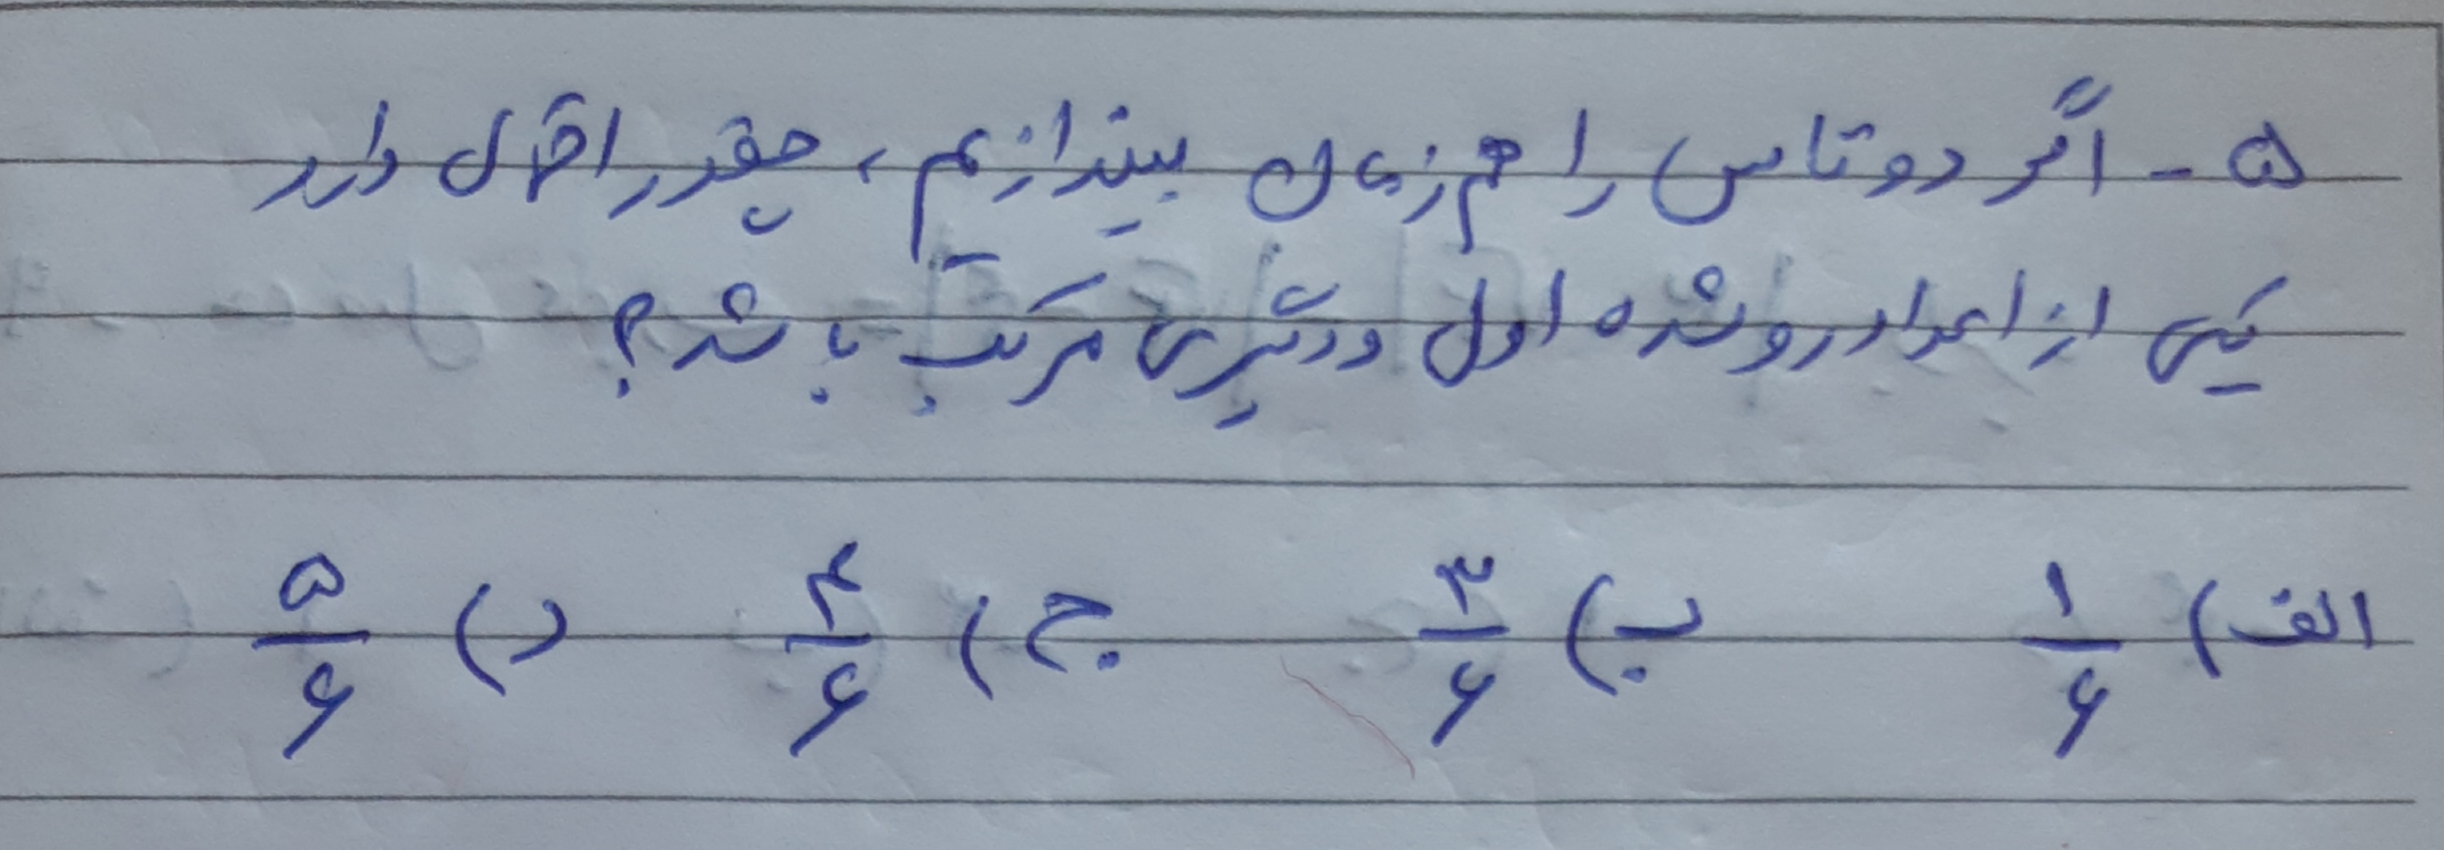 ۵- اگر دو تاس را هم زمان بیندازیم، چقدر احتمال دارد
یکی از اعداد رو شده اول و دیگری مرکب باشد؟
الف) ۱/۶ ب) ۳/۶ ج) ۴/۶ د) ۵/۶